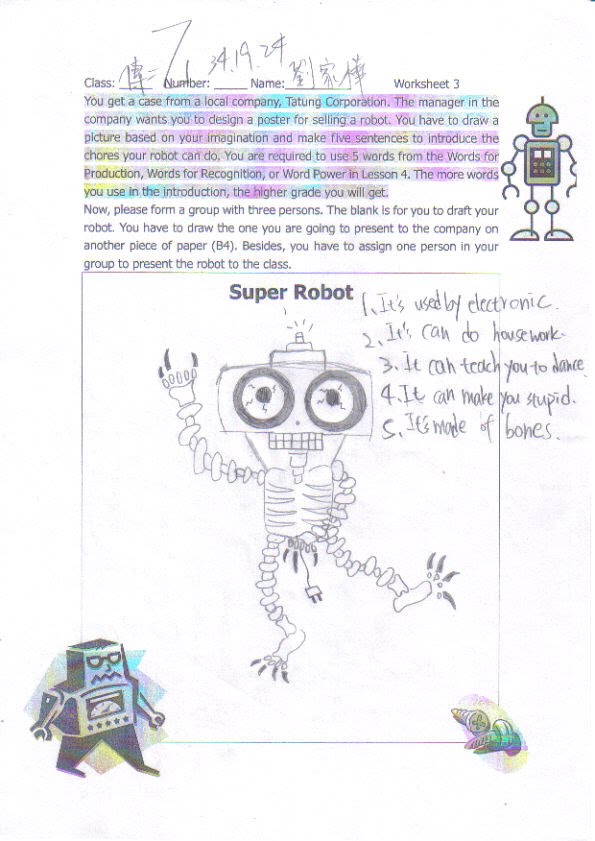 7 34.19.24
Class: 傳二 Number: ____ Name: 劉家樺 Worksheet 3
You get a case from a local company, Tatung Corporation. The manager in the
company wants you to design a poster for selling a robot. You have to draw a
picture based on your imagination and make five sentences to introduce the
chores your robot can do. You are required to use 5 words from the Words for
Production, Words for Recognition, or Word Power in Lesson 4. The more words
you use in the introduction, the higher grade you will get.
Now, please form a group with three persons. The blank is for you to draft your
robot. You have to draw the one you are going to present to the company on
another piece of paper (B4). Besides, you have to assign one person in your
group to present the robot to the class.
Super Robot
1. It's used by electronic.
2. It's can do housework.
3. It can teach you to dance.
4. It can make you stupid.
5. It's made of bones.